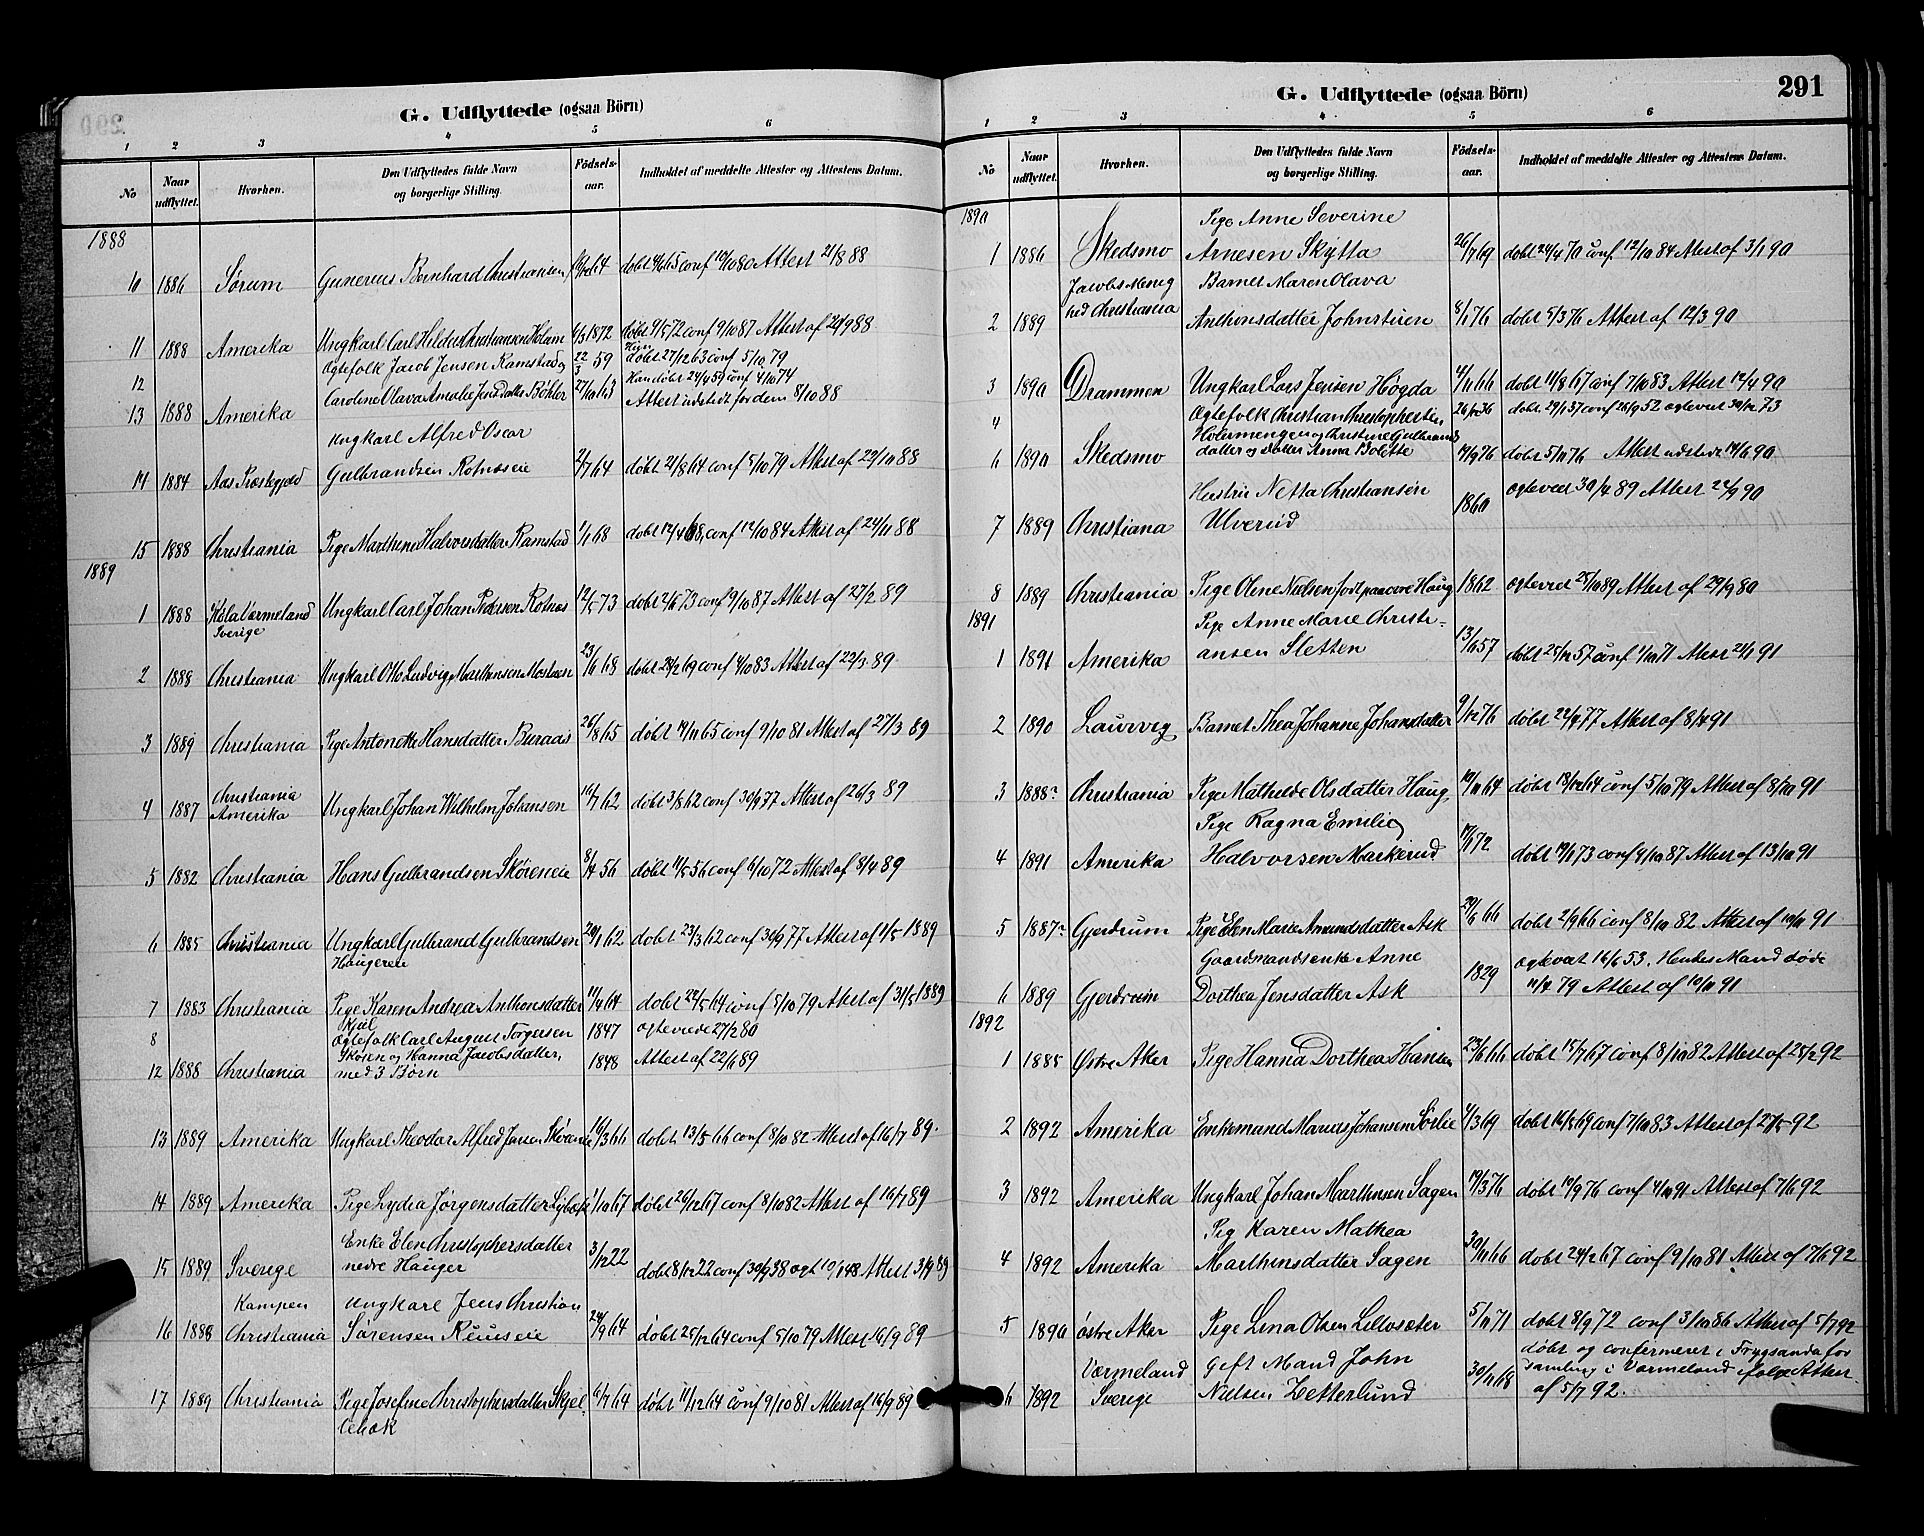 G. Udflyttede (ogsaa Börn)
1 2 3 4 5 6
No Naar udflyttet. Hvorhen. Den Udflyttedes fulde Navn og borgerlige Stilling. Födsels-aar. Indholdet af meddelte Attester og Attestens Datum.
1888
10 1886 Sørum Gunerius Bernhard Christiansen døbt conf Attest 21/8 88
11 1888 Amerika Ungkarl Carl Christiansen Holum 1872 døbt 9/5 72 conf 9/10 87 Attest af 21/9 88
Ogtefolk Jacob Jensen Ramstad og 59 døbt 27/12 63 conf 5/10 79
12 Han døbt 24/4 59 conf 4/10 74
13 1888 Amerika Caroline Olava Amalie Bøhler 27/10 63 Attest udstedt for dem 8/10 88
Ungkarl Alfred Oscar
14 1884 Aas Præstegjeld Gulbrandsen Rotnæseie 2/7 64 døbt 21/8 64 conf 5/10 79 Attest af 29/10 88
15 1888 Christiania Pige Marthine Halvorsdatter Ramstad 1/1 68 døbt 12/4 68, conf 12/10 84 Attest af 24/11 88
1889
1 1888 Köla Værmeland Ungkarl Carl Johan Pedersen Rotnæs 12/5 73 døbt 2/6 73 conf 9/10 87 Attest af 27/2 89
Sverige
2 1888 Christiania Ungkarl Otto Ludvig Marthinsen 23/ 68 døbt 28/2 69 conf 4/10 83 Attest af 22/3 89
3 1889 Christiania Pige Antonette Hansdatter Buraas 26/8 65 døbt 19/11 65 conf 9/10 81 Attest af 27/3 89
Christiania
4 1887 Amerika Ungkarl Johan Wilhelm Johansen 10/7 62 døbt 3/8 62 conf 30/9 77 Attest af 26/3 89
5 1882 Christiania Hans Gulbrandsen Skøieneie 8/4 56 døbt 11/5 56 conf 6/10 72 Attest af 8/4 89
6 1885 Christiania Ungkarl Gulbrand Gulbrandsen 20/1 62 døbt 23/3 62 conf 30/9 77 Attest af 1/5 1889
Haugereie
7 1883 Christiania Pige Karen Andrea Anthonsdatter 64 døbt 22/5 64 conf 5/10 79 Attest af 31/5 1889
8 Ogtefolk Carl August Torgersen 1847 ogteviede 27/2 80
Skøien og Hanna Jacobsdatter, 1848 Attest af 22/6 89
12 1888 Christiania med 3 Børn
13 1889 Amerika Ungkarl Theodor Alfred Jensen 16/3 66 døbt 13/5 66 conf 8/10 82 Attest af 16/7 89.
14 1889 Amerika Pige Lydia Jørgensdatter 1/10 67 døbt 26/12 67 conf 8/10 82 Attest af 16/7 89
Enke Elen Christophersdatter
15 1889 Sverige nedre Hauger 3/12 22 døbt 8/12 22 conf 30/9 38 ogt 48 Attest 3/9 89
Kampen Ungkarl Jens Christian
16 1888 Christiania Sørensen 24/9 64 døbt 25/12 64 conf 5/10 79 Attest 16/9 89
17 1889 Christiania Pige Josefine Christophersdatter Skjel- 6/7 64 døbt 11/12 64 conf 9/10 81 Attest af 16/9 89
G. Udflyttede (ogsaa Börn)
291
1 2 3 4 5 6
No Naar udflyttet. Hvorhen. Den Udflyttedes fulde Navn og borgerlige Stilling. Födsels-aar. Indholdet af meddelte Attester og Attestens Datum.
1890
Pige Anne Severine
1 1886 Skedsmo Arnesen Skytta 26/7 69 døbt 24/4 70 conf 12/10 84 Attest af 3/1 90
Jacobs Menig Barnet Maren Olava
hed Christiania
2 1889 Anthonsdatter 8/1 76 døbt 5/3 76 Attest af 12/3 90
3 1890 Drammen Ungkarl Lars Jensen Høgda 4/11 66 døbt 11/8 67 conf 7/10 83 Attest 12/4 90
4 Ogtefolk Christian Christophersen 26/12 36 døbt 29/1 37 conf 26/9 52 ogteviet 30/12 73
Holermengen og Christine Gulbrands
6 1890 Skedsmo datter og datter Anna Bolette 14/9 76 døbt 5/11 76 Attest udstedt 14/6 90
Hustru Netta Christiansen 1860 ogteviet 30/4 89 Attest 22/9 90
7 1889 Christiana Ulverud
8 1889 Christiania Pige Oline Nielsen født paa ovre Haug 1862 ogteviet 25/10 89 Attest af 29/9 80
1891
Pige Anne Marie Christi-
1 1891 Amerika ansen Sletten 13/ 57 døbt 25/12 57 conf 1/10 71 Attest 24/1 91
2 1890 Laurvig Barnet Thea Johanne Johansdatter 9/12 76 døbt 22/4 77 Attest af 8/4 91
3 1888 Christiania Pige Mathilde Olsdatter Haug 10/11 64 døbt 18/12 64 conf 5/10 79 Attest af 8/10 91
Pige Ragna Emilie
4 1891 Amerika Halvorsen Markerud 72 døbt 73 conf 9/10 87 Attest af 13/10 91
5 1887 Gjerdrum Pige Elen Marie Amundsdatter Ask 29/6 66 døbt 2/9 66 conf 8/10 82 Attest af 10/11 91
Gaardmandsenke Anne ogteviet 16/6 53. Hendes Mand døde
6 1889 Gjerdrum Dorthea Jensdatter Ask 1829 79 Attest af 10/11 91
1892
1 1885 Østre Aker Pige Hanna Dorthea Hansen 23/6 66 døbt 15/7 67 conf 8/10 82 Attest af 25/2 92
2 1892 Amerika Enkemand Marius Johansen Sørlie 4/3 69 døbt 16/5 69 conf 7/10 83 Attest af 27/5 92
3 1892 Amerika Ungkarl Johan Marthinsen Sagen 19/3 76 døbt 76 conf 4/10 91 Attest af 7/6 92
Pig Karen Mathea
4 1892 Amerika Marthinsdatter Sagen 30/11 66 døbt 24/2 67 conf 9/10 81 Attest af 7/6 92
5 1890 østre Aker Pige Lina Olsen Lillosæter 5/11 71 døbt 8/9 72 conf 3/10 86 Attest af 5/7 92
Værmeland gift Mand John døbt og confermeret i Frygsanda for
6 1892 Sverige Nielsen Hetterlund 30/11 68 samling i Værmeland ifølge Attest
af 5/7 92.